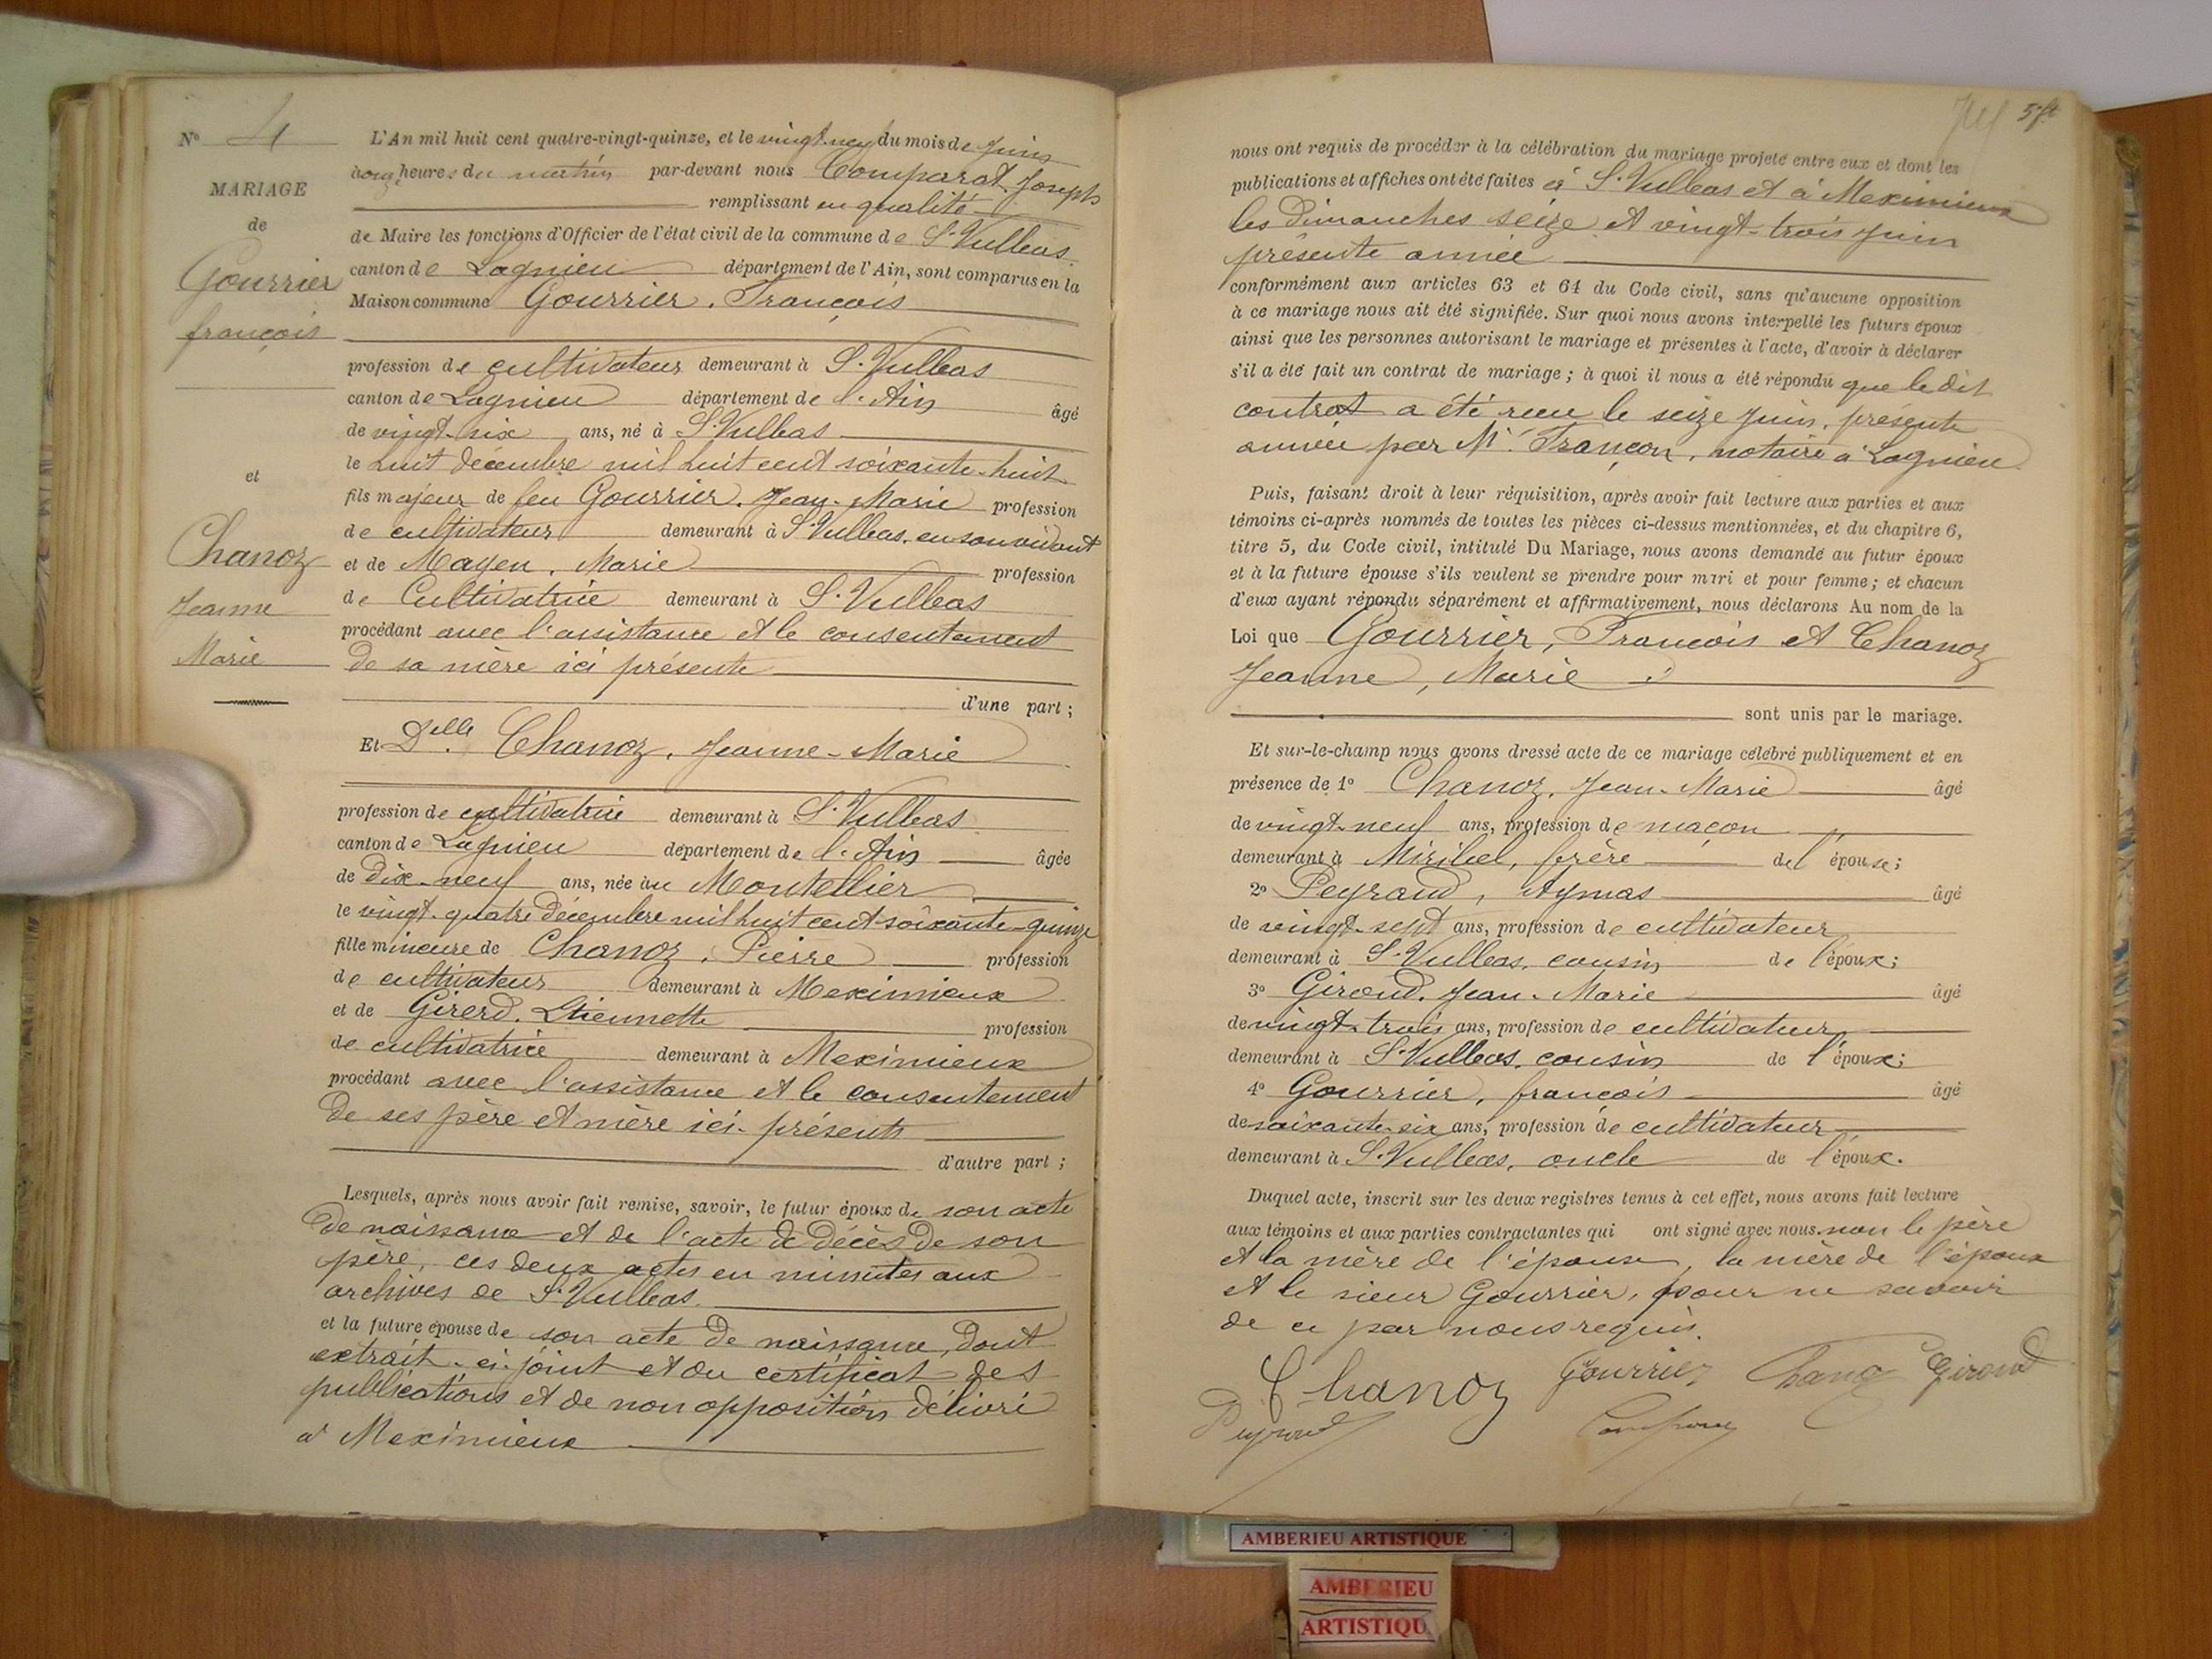 N° 4
MARIAGE
de
Gourrier
françois
et
Chanoz
Jeanne
Marie
L'An mil huit cent quatre-vingt-quinze, et le vingt-neuf du mois de Juin
à onze heures du matin par-devant nous Comparat, Joseph
remplissant en qualité
de Maire les fonctions d'Officier de l'état civil de la commune de St Vulbas
canton de Lagnieu département de l'Ain, sont comparus en la
Maison commune Gourrier, François
profession de cultivateur demeurant à St Vulbas
canton de Lagnieu département de l'Ain âgé
de vingt-six ans, né à St Vulbas
le huit décembre mil huit cent soixante-huit
fils majeur de feu Gourrier, Jean-Marie profession
de cultivateur demeurant à St Vulbas, en son vivant
et de Mayen, Marie profession
de Cultivatrice demeurant à St Vulbas
procédant avec l'assistance et le consentement
de sa mère ici présente
d'une part ;
Et Delle Chanoz, Jeanne-Marie
profession de cultivatrice demeurant à St Vulbas
canton de Lagnieu département de l'Ain âgée
de Dix-neuf ans, née au Montellier
le vingt-quatre Décembre mil huit cent soixante-quinze
fille mineure de Chanoz, Pierre profession
de cultivateur demeurant à Meximieux
et de Girerd, Etiennette profession
de cultivatrice demeurant à Meximieux
procédant avec l'assistance et le consentement
de ses père et mère ici présents
d'autre part ;
Lesquels, après nous avoir fait remise, savoir, le futur époux de son acte
de naissance et de l'acte de décès de son
père, ces deux actes en minutes aux
archives de St Vulbas
et la future épouse de son acte de naissance, dont
extrait ci-joint et du certificat des
publications et de non opposition délivré
à Meximieux
57
nous ont requis de procéder à la célébration du mariage projeté entre eux et dont les
publications et affiches ont été faites à St Vulbas et à Meximieux
les Dimanches seize et vingt-trois Juin
présente année
conformément aux articles 63 et 64 du Code civil, sans qu'aucune opposition
à ce mariage nous ait été signifiée. Sur quoi nous avons interpellé les futurs époux
ainsi que les personnes autorisant le mariage et présentes à l'acte, d'avoir à déclarer
s'il a été fait un contrat de mariage ; à quoi il nous a été répondu que le dit
contrat a été reçu le seize Juin, présente
année par Me Françon, notaire à Lagnieu
Puis, faisant droit à leur réquisition, après avoir fait lecture aux parties et aux
témoins ci-après nommés de toutes les pièces ci-dessus mentionnées, et du chapitre 6,
titre 5, du Code civil, intitulé Du Mariage, nous avons demandé au futur époux
et à la future épouse s'ils veulent se prendre pour mari et pour femme ; et chacun
d'eux ayant répondu séparément et affirmativement, nous déclarons Au nom de la
Loi que Gourrier, François et Chanoz
Jeanne, Marie
sont unis par le mariage.
Et sur-le-champ nous avons dressé acte de ce mariage célébré publiquement et en
présence de 1° Chanoz, Jean-Marie âgé
de vingt-neuf ans, profession de maçon
demeurant à Miribel, frère de l'épouse ;
2° Peyraud, Aymas âgé
de vingt-sept ans, profession de cultivateur
demeurant à St Vulbas, cousin de l'époux ;
3° Giroud, Jean-Marie âgé
de vingt-trois ans, profession de cultivateur
demeurant à St Vulbas, cousin de l'époux ;
4° Gourrier, françois âgé
de soixante-six ans, profession de cultivateur
demeurant à St Vulbas, oncle de l'époux.
Duquel acte, inscrit sur les deux registres tenus à cet effet, nous avons fait lecture
aux témoins et aux parties contractantes qui ont signé avec nous, non le père
et la mère de l'épouse, la mère de l'époux
et le sieur Gourrier, pour ne savoir
de ce par nous requis.
Chanoz Gourrier Chanoz Giroud
Peyraud
AMBERIEU ARTISTIQUE
AMBERIEU
ARTISTIQU